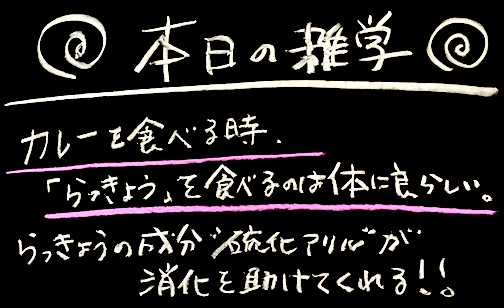 本日の雑学
カレーを食べる時、
「らっきょう」を食べるのは体に良らしい。
らっきょうの成分"硫化アリル"が
消化を助けてくれる!!